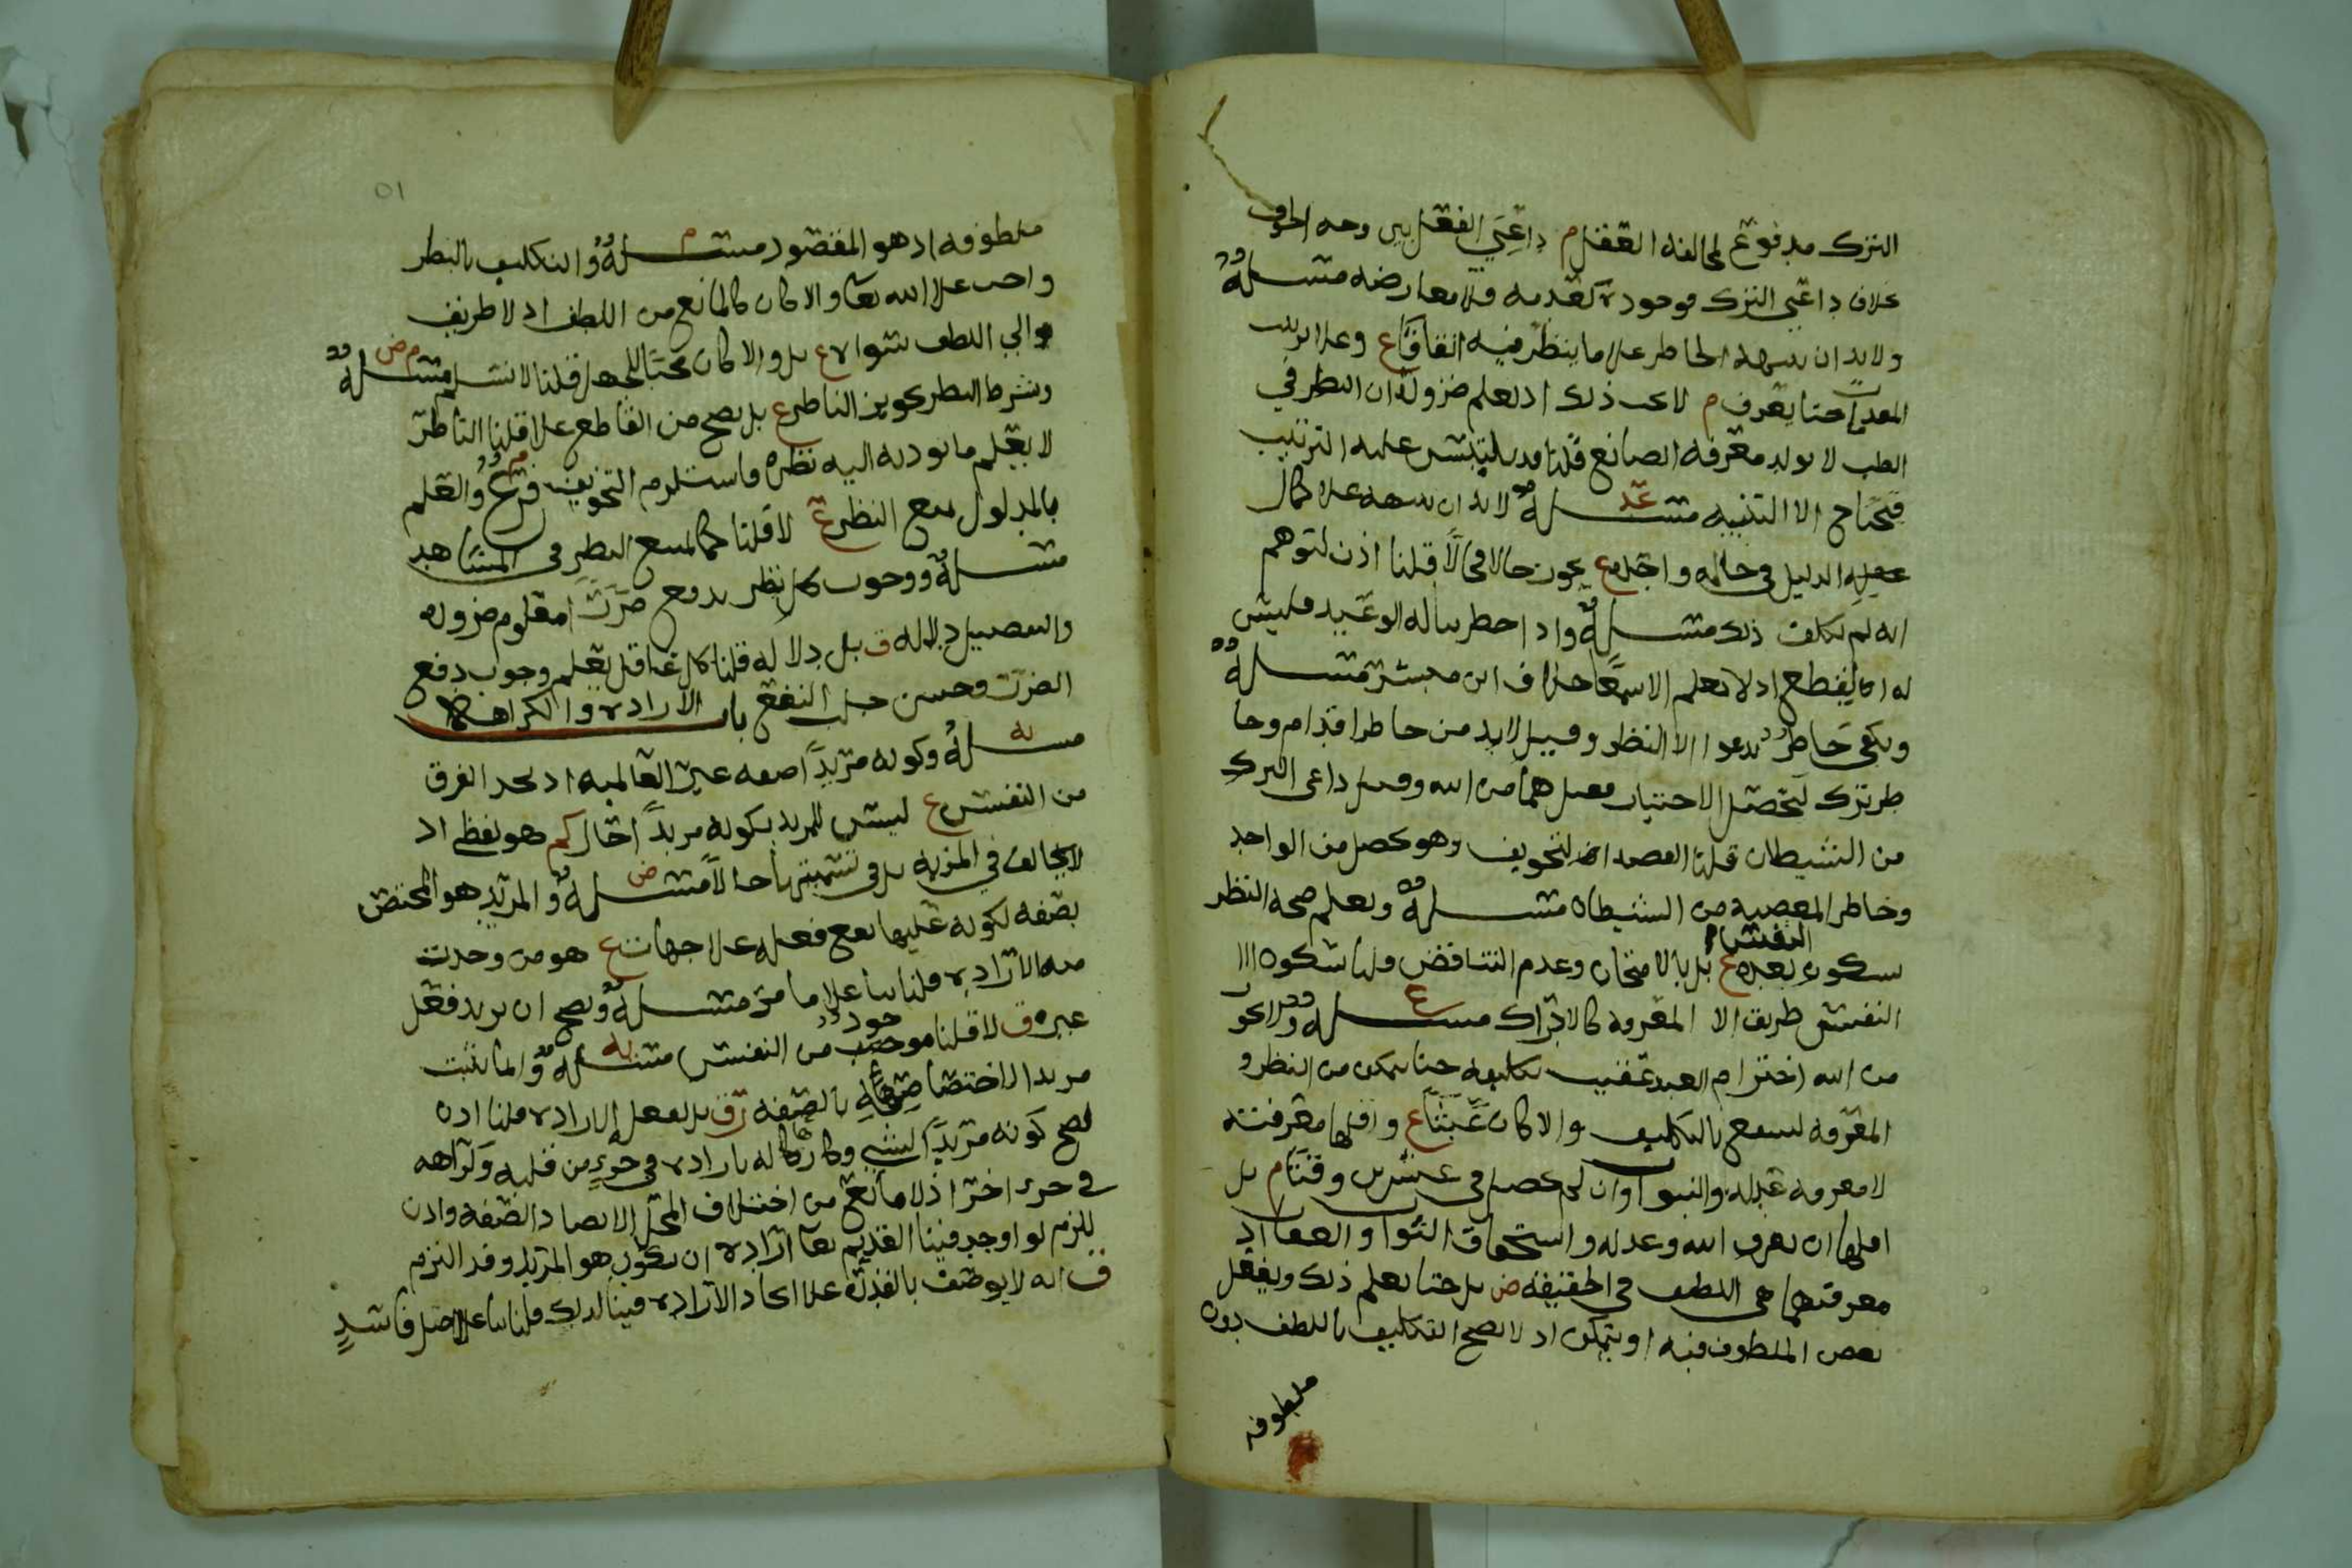 الترك مدفوع لمخالفه العقل م داعي الفعل بين وجه الخوف
خلاف داعي الترك موجوده كعدمه فلا معارضه مسـله
ولا بد ان ينبهه الخاطر على ما ينظر فيه اتفاقا ع وعلى ترتيب
المعدمات حتا يعرف م لا يجب ذلك اذ يعلم ضروره ان النظر في
الطب لا يولد معرفه الصانع قلنا قد يلتبس عليه الترتيب
فيحتاج الا التنبيه مسـله عد لا بد ان ينبهه على كمال
الدليل في حاله واحده ع يجوز حالا فحالا قلنا اذن لتوهم
انه لم يكلف ذلك مسـله واذا خطر بباله الوعيد فليس
له ان يقطع اذ لا يعلم الا سمعا خلاف ابن مبشر مسـله
ويكفي خاطر يدعوا الا النظر وقيل لا بد من خاطر اقدام وخا
طر ترك ليحصل الاختيار فقيل هما من الله وقيل داعي الترك
من الشيطان قلنا القصد التخويف وهو يحصل من الواحد
وخاطر المعصيه من الشيطان مسـله ويعلم صحه النظر
سكون النفس بعده ع بل بالامتحان وعدم التناقض قلنا سكون
النفس طريق الا المعرفه كالادراك مسـله ع ولا يجوز
من الله اخترام العبد عقيب تكليفه حتا يمكن من النظر و
المعرفه لينتفع بالتكليف والا كان عبثا ع واقلها معرفته
لا معرفه عدله والنبوات وان لم يحصل في عشرين وقتا م بل
اقلها ان يعرف الله وعدله واستحقاق الثواب والعقاب اذ
معرفتهما هي اللطف في الحقيقه ض بل حتا يعلم ذلك ويفعل
بعض الملطوف فيه او يتمكن اذ لا يصح التكليف باللطف دون
ملطوفه
٥١
ملطوفه اذ هو المقصود مسـله م والتكليف بالنظر
واجب على الله تعا والا كان كالمانع من اللطف اذ لا طريق
الي اللطف سواه ع بل والا كان محسنا للجهل قلنا لا نسلم مسـله م ض
وشرط النظر تجويز الناظر ع بل يصح من القاطع على قلنا الناظر
لا يعلم ما يوديه اليه نظره فاستلزم التجويز فرع م والعلم
بالمدلول يمنع النظر ع لا قلنا كما يمنع النظر في المشاهد
مسـله ووجوب كل نظر يدفع ضررا معلوم ضروره
والتفصيل دلاله ق بل دلاله قلنا كل عاقل يعلم وجوب دفع
الضرر وحسن جلب النفع باب الاراده والكراهه
مسـله يه وكونه مريدا صفه غير العالميه اذ يجد الفرق
من النفس ع ليس للمريد بكونه مريدا حال كم هو لفظي اذ
لا يخالف في المزيه بل في تسميتها حالا مسـله ض والمريد هو المختص
بصفه لكونه عليها يقع فعله على جهات ع هو من وجدت
منه الاراده قلنا بنا على ما مر مسـله ويصح ان يريد فعل
غيره ق لا قلنا موجود من النفس مسـله يه وانما يثبت
مريدا لاختصاصه بالصفه ق بل لفعل الاراده قلنا اذن
لصح كونه مريدا لشي وكارها له باراده في جزء من قلبه وكراهه
في جزء اخر اذ لا مانع من اختلاف المحل الا تضاد الصفه واذن
للزم لو اوجد فينا القديم تعا اراده ان يكون هو المريد وقد التزم
ق انه لا يوصف بالقدره على ايجاد الاراده فينا لذلك قلنا بنا على اصل فاسد